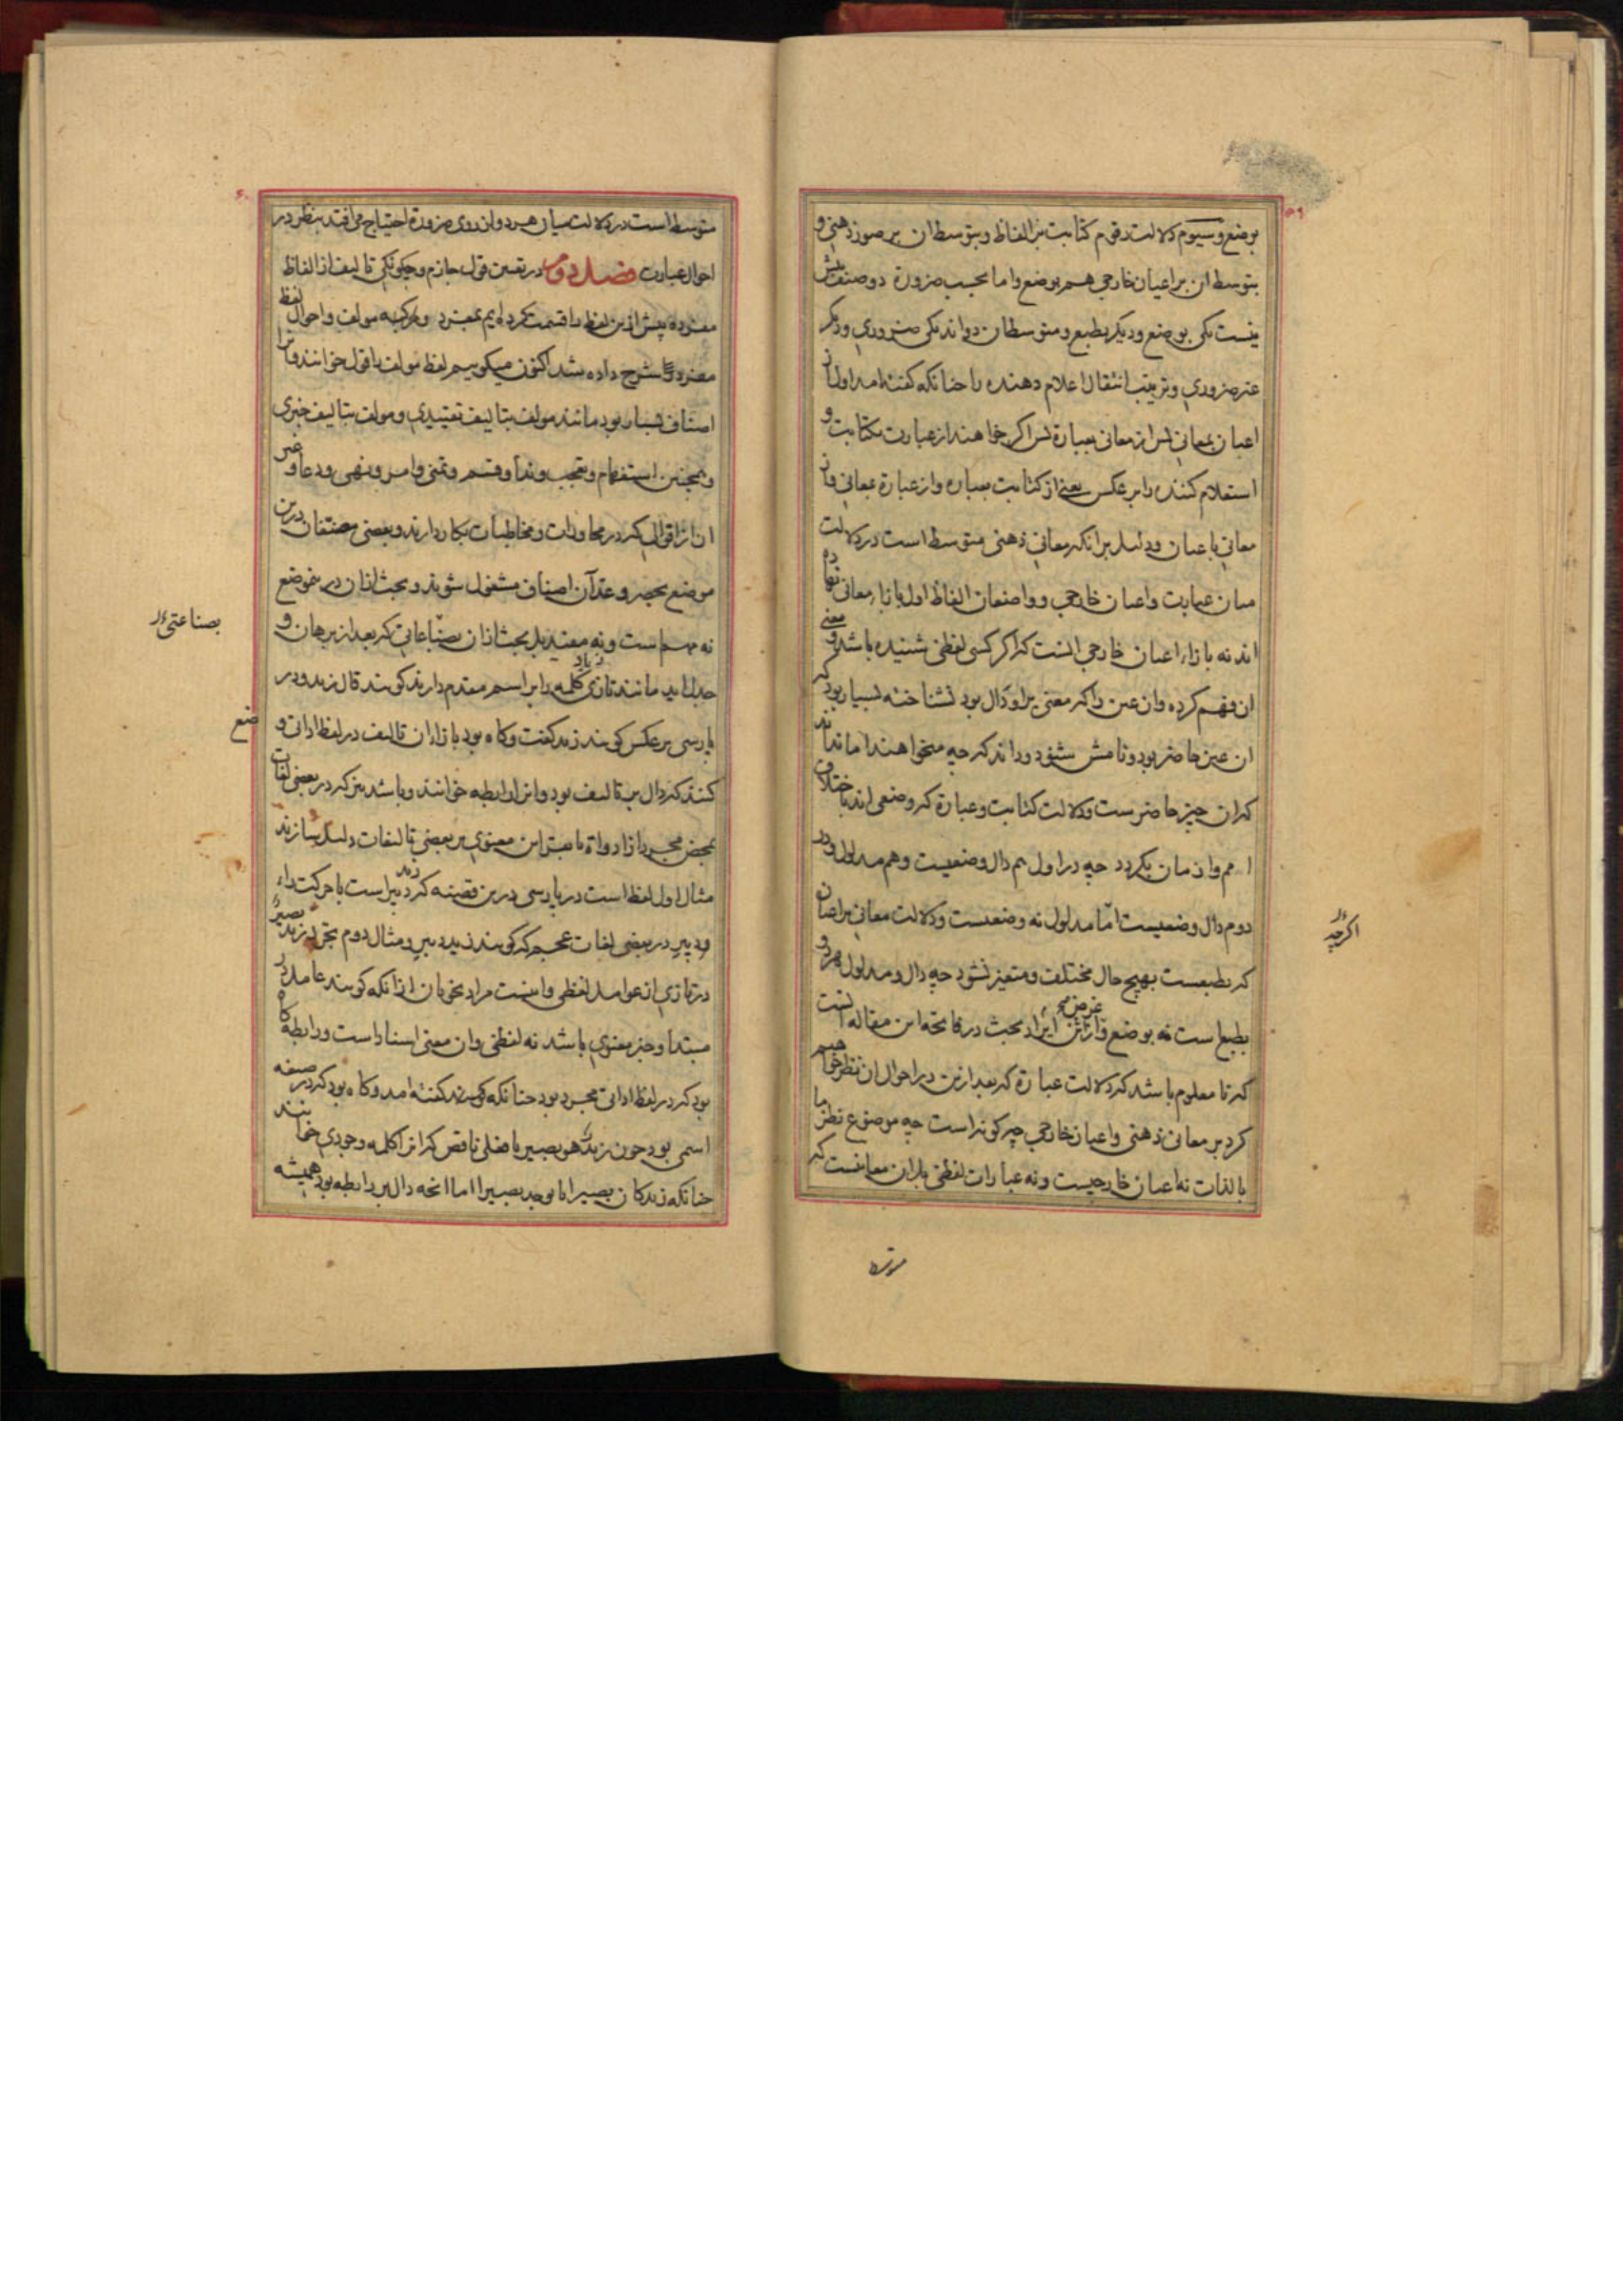 ۵۹
بوضع و سیوم دلالت رقوم کتابت بر الفاظ و بتوسط ان بر صور ذهنی و
بتوسط ان بر اعیان خارجی هم بوضع و اما بحسب ضرورة دو صنف بیش
نیست یکی بوضع و دیگر بطبع و متوسطان دواند یکی ضروری و دیگر
غیر ضروری و ترتیب انتقال اعلام دهنده را چنانکه کفته امد اول از
اعیان بمعانی پس از معانی بعبارة پس اکر خواهند از عبارت بکتابت و
استعلام کننده را بر عکس یعنی از کتابت بعباره و از عبارة بمعانی و از
معانی باعیان و دلیل برانکه معانی ذهنی متوسط است در دلالت
میان عبارت و اعیان خارجی و واضعان الفاظ اول بازاء معانی نهاده
اند نه بازاء اعیان خارجی انست که اکر کسی لفظی شنیده باشد و معنی
ان فهم کرده وان عین را که معنی برو دال بود نشناخته بسیار بود که
ان عین حاضر بود و نامش شنود و داند که چه میخواهند اما نداند
که ان چیز حاضرست و دلالت کتابت و عبارة که وضعی اند باختلاف
امم و ازمان بکردد چه در اول هم دال وضعیست و هم مدلول و در
دوم دال وضعیست امّا مدلول نه وضعیست و دلالت معانی بر اعیان
که بطبعست بهیچ حال مختلف و متغیر نشود چه دال و مدلول هر دو
بطبع است نه بوضع و غرض از ایراد بحث در فاتحه این مقاله انست
که تا معلوم باشد که دلالت عبارة که بعد ازین در احوال ان نظر خواهیم
کرد بر معانی ذهنی و اعیان خارجی چه کونه است چه موضوع نظر ما
بالذات نه اعیان خارجیست و نه عبارات لفظی بل ان معانیست که
اکرچه
متوسط
۶۰
متوسط است در دلالت میان هر دو و از روی ضرورة احتیاج می افتد بنظر در
احوال عبارت فصل دوم در تعیین قول جازم و چکونکی تالیف از الفاظ
مفرده پیش ازین لفظ را قسمت کرده ایم بمفرد و مرکب و مولف و احوال لفظ
مفرد شرح داده شد اکنون میکوییم لفظ مولف را قول خوانند و انرا
اصناف بسیار بود مانند مولف بتالیف تقییدی و مولف بتالیف خبری
و همچنین استفهام و تعجب و ندا و قسم و تمنی و امر و نهی و دعا و غیر
ان از اقوال که در محاورات و مخاطبات بکار دارند و بعضی مصنفان درین
موضع بحصر و عدّ آن اصناف مشغول شوند و بحث ازان درین موضع
نه مهم است و نه مفید بل بحث ازان بصناعاتی که بعد از برهان و
جدل اید مانند تازی کلمه را بر اسم مقدم دارند کویند قال زید و در
پارسی بر عکس کویند زید کفت و کاه بود بازاء ان تالیف در لفظ اداتی و
کنند که دال بر تالیف بود وانرا رابطه خوانند و باشد نیز که در بعضی لغات
بمحض مجرد از ادواة یا هیئتی معنوی بر بعضی تالیفات دلیل سازند
مثال اول لفظ است در پارسی درین قضیه که زید دبیر است یا حرکت راء
دبیر در بعضی لغات عجم که کویند زید دبیر و مثال دوم تجرد زید بصیرٌ
در تازی از عوامل لفظی و اینست مراد نحویان از انکه کویند عامل در
مبتدا و خبر معنوی باشد نه لفظی و ان معنی اسناد است و رابطه کاه
بود که در لفظ اداتی مجرد بود چنانکه کفته امد و کاه بود که در صیغه
اسمی بود چون زید هو بصیر یا فعلی ناقص که انرا کلمه وجودی خوانند
چنانکه زید کان بصیرا یا یوجد بصیرا اما انچه دال بر رابطه بود همیشه
بصناعتی
ضع